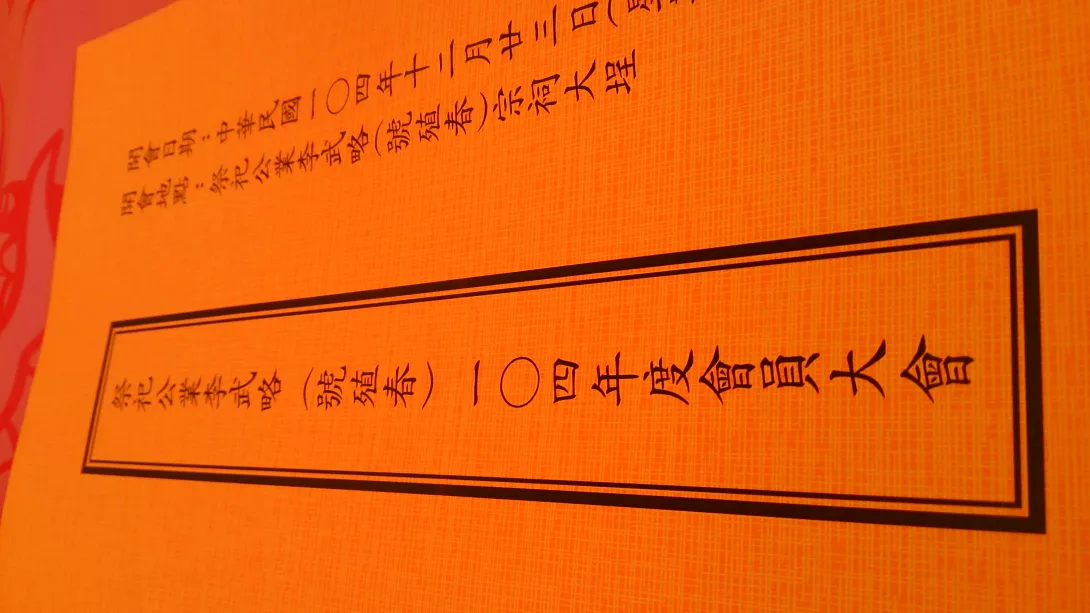 開會日期：中華民國一〇四年十二月廿三日(
開會地點：祭祀公業李武略(號殖春)宗祠大埕
祭祀公業李武略（號殖春）一〇四年度會員大會